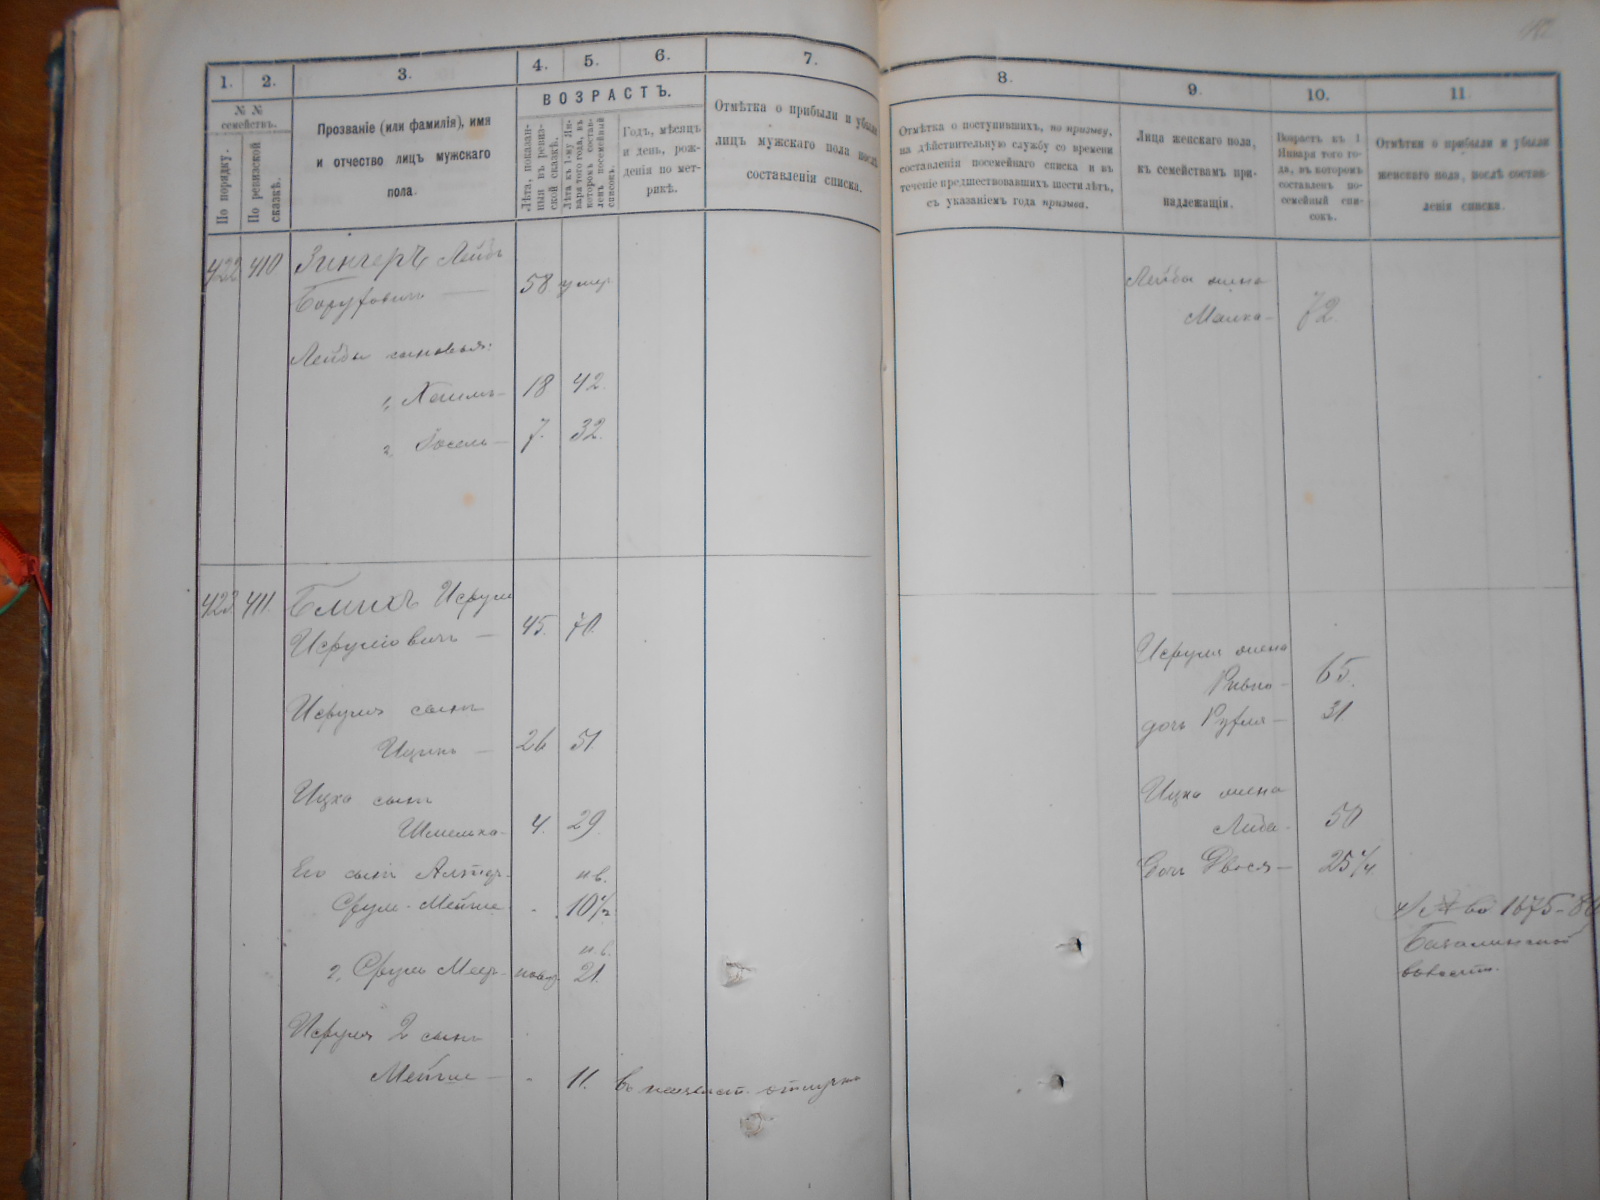 1.
2.
3.
4.
5.
6.
7.
8.
9.
10.
11
№ №
семействъ.
По порядку.
По ревизской
сказкѣ.
Прозваніе (или фамилія), имя
и отчество лицъ мужскаго
пола.
ВОЗРАСТЪ.
Лѣта, показан-
ныя въ ревиз-
ской сказкѣ.
Лѣта къ 1-му Ян-
варя того года, въ
которомъ состав-
ленъ посемейный
списокъ.
Годъ, мѣсяцъ
и день, рож-
денія по мет-
рикѣ.
Отмѣтка о прибыли и убыли
лицъ мужскаго пола послѣ
составленія списка.
Отмѣтка о поступившихъ, по призыву,
на дѣйствительную службу со времени
составленія посемейнаго списка и въ
теченіе предшествовавшихъ шести лѣтъ,
съ указаніемъ года призыва.
Лица женскаго пола,
къ семействамъ при-
надлежащія.
Возрастъ къ 1
Января того го-
да, въ которомъ
составленъ по-
семейный спи-
сокъ.
Отмѣтки о прибыли и убыли
женскаго пола, послѣ состав-
ленія списка.
422 410 Зингеръ Лейба
Боруховичъ — 58 умер
Лейбы жена
Малка — 72
Лейбы сыновья:
1, Хаимъ — 18 42.
2, Іосель — 7. 32.
423 411. Блихъ Исруль
Исрулiовичъ — 45. 70.
Исруля жена
Ривка — 65.
дочь Рухля — 31
Исруля сынъ
Ицикъ — 26 51
Ицка жена
Либа — 50
Ицка сынъ
Шмелька — 4. 29.
дочь Двося — 25
Его сынъ
Сруль-Мейше - 10½
2, Сруль 21.
1875-
волости.
Исруля 2 сынъ
Мейше — - 11. въ отлучкѣ